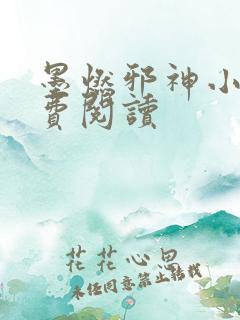 墨燃邪神小
費閱讀
花花心思
未经同意禁止转载